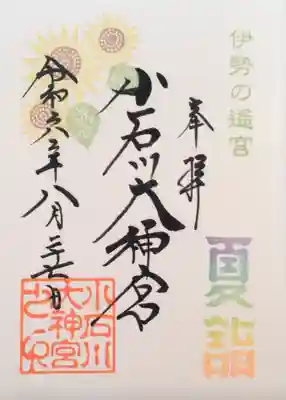 伊勢の遥宮
夏詣
奉拝
小石川大神宮
令和六年八月二十七日
小石川
大神宮